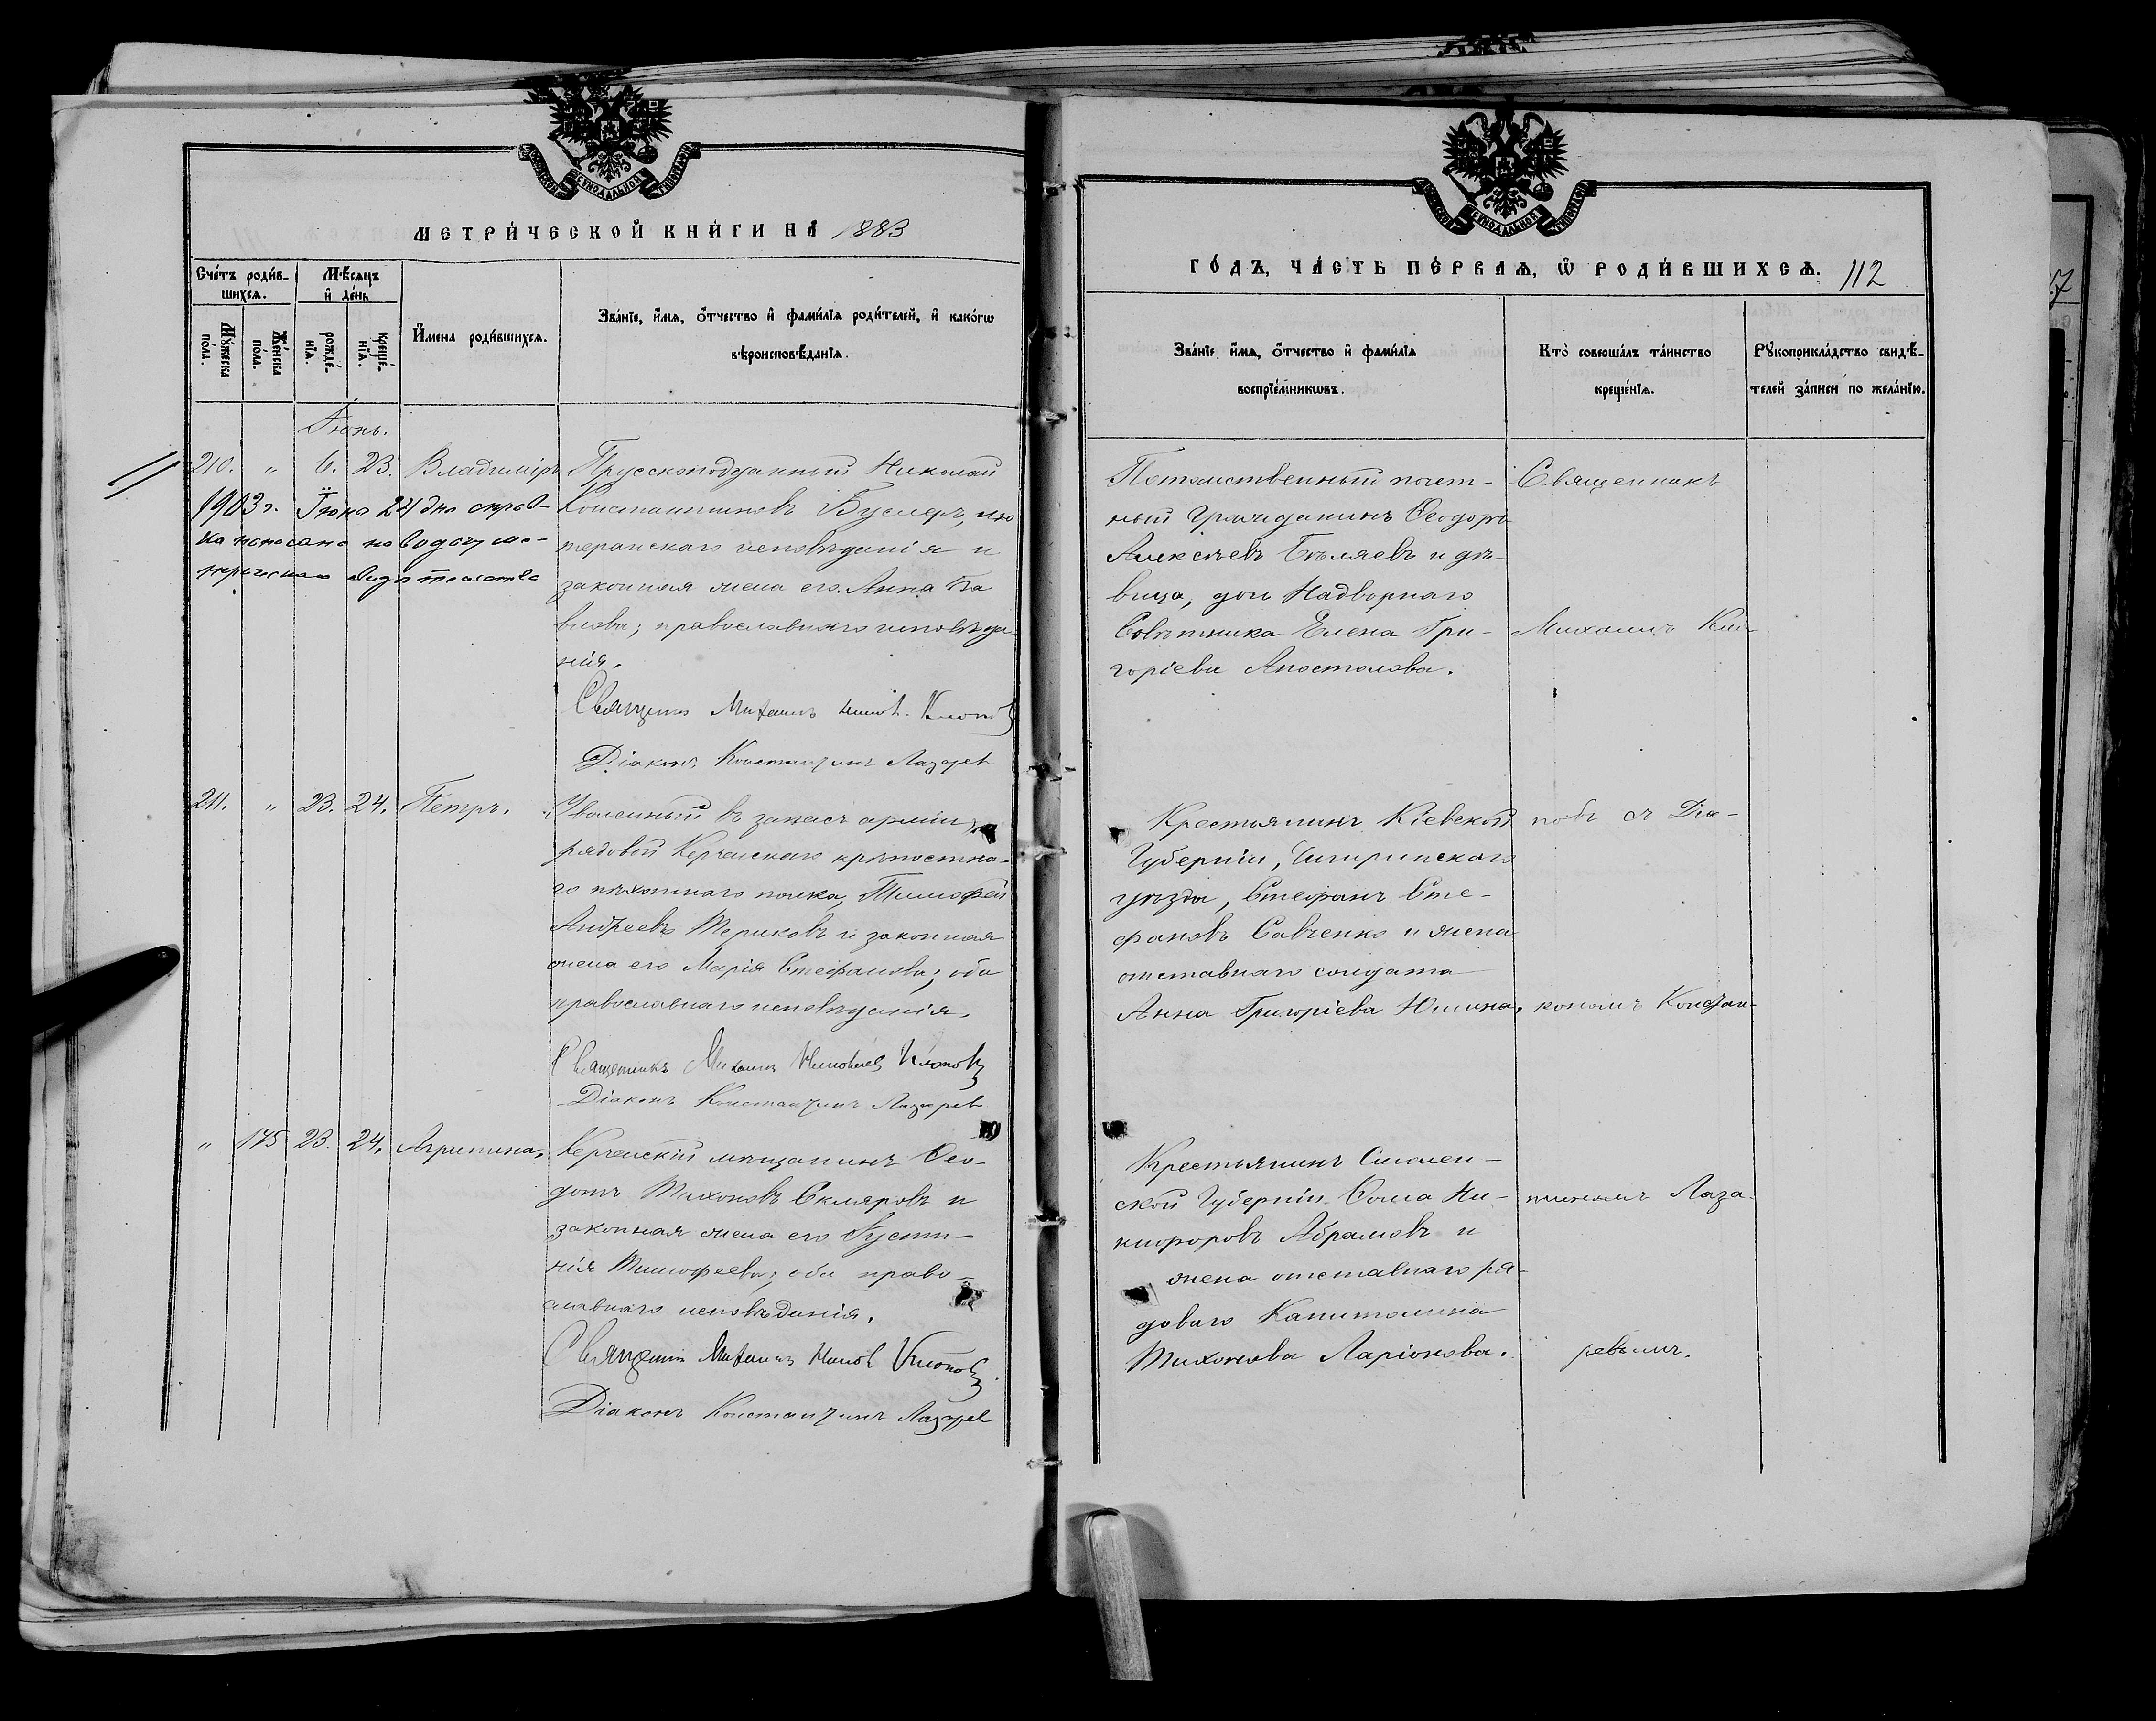 МЕТРИ́ЧЕСКОЙ КНИ́ГИ НА 1883
Сче́тъ роди́в-
шихсѧ.
Мѣ́сѧцъ
и҆ де́нь
Мꙋ́жеска
по́ла.
Же́нска
по́ла.
рожде́-
нїѧ.
креще́-
нїѧ.
И҆мена роди́вшихсѧ.
Зва́нїе, и҆́мѧ, ѻ҆́тчество и҆ фами́лїѧ роди́телей, и҆ како́гѡ
вѣроисповѣ́данїѧ.
Іюнь.
210. " 6. 23. Владиміръ
Прусскоподданный Николай
Константиновъ Буслеръ, лю
теранскаго исповѣданія и
законная жена его Анна Па
влова; православнаго исповѣда-
нія.
1903 г. Іюня 24 дня справ-
ка на ме-
Священик Михаилъ Клопов
Діаконъ Константинъ Лазарев
211. " 23. 24. Петръ.
Уволенный въ запасъ арміи,
рядовой Керченскаго крѣпостна-
го пѣхотнаго полка, Тимофей
Андреевъ Териковъ и законная
жена его Марія Стефанова; оба
православнаго исповѣданія.
Священникъ Михаилъ Клопов
Діаконъ Константинъ Лазарев
" 175 23. 24. Агрипина.
Керченскій мѣщанинъ Ѳео-
дотъ Тихоновъ Скляровъ и
законная жена его Іусти-
нія Тимофеева; оба право-
славнаго исповѣданія.
Священик Михаилъ Клопов
Діаконъ Константинъ Лазарев
ГО́ДЪ, ЧА́СТЬ ПЕ́РВАѦ, Ѡ҆ РОДИ́ВШИХСѦ. 112
Зва́нїе и҆́мѧ, ѻ҆́тчество и҆ фами́лїѧ
воспрїе́мникѡвъ.
Кто̀ соверша́лъ та́инство
креще́нїѧ.
Рꙋкоприкла́дство свидѣ́-
телей за́писи по жела́нїю.
Потомственный почет-
ный Гражданинъ Ѳеодоръ
Алексѣевъ Бѣляевъ и дѣ-
вица, дочь Надворнаго
Совѣтника Елена Гри-
горіева Апостолова.
Священникъ
Михаилъ Кло-
Крестьянинъ Кіевской
Губерніи, Чигиринскаго
уѣзда, Стефанъ Сте-
фановъ Савченко и жена
отставнаго солдата
Анна Григоріева Юшина.
повъ съ Діа-
кономъ Констан-
Крестьянинъ Смолен-
ской Губерніи Ѳома Ни-
кифоровъ Абрамовъ и
жена отставнаго ря-
доваго Капитолина
Тихонова Ларіонова.
тиномъ Лаза-
ревымъ.